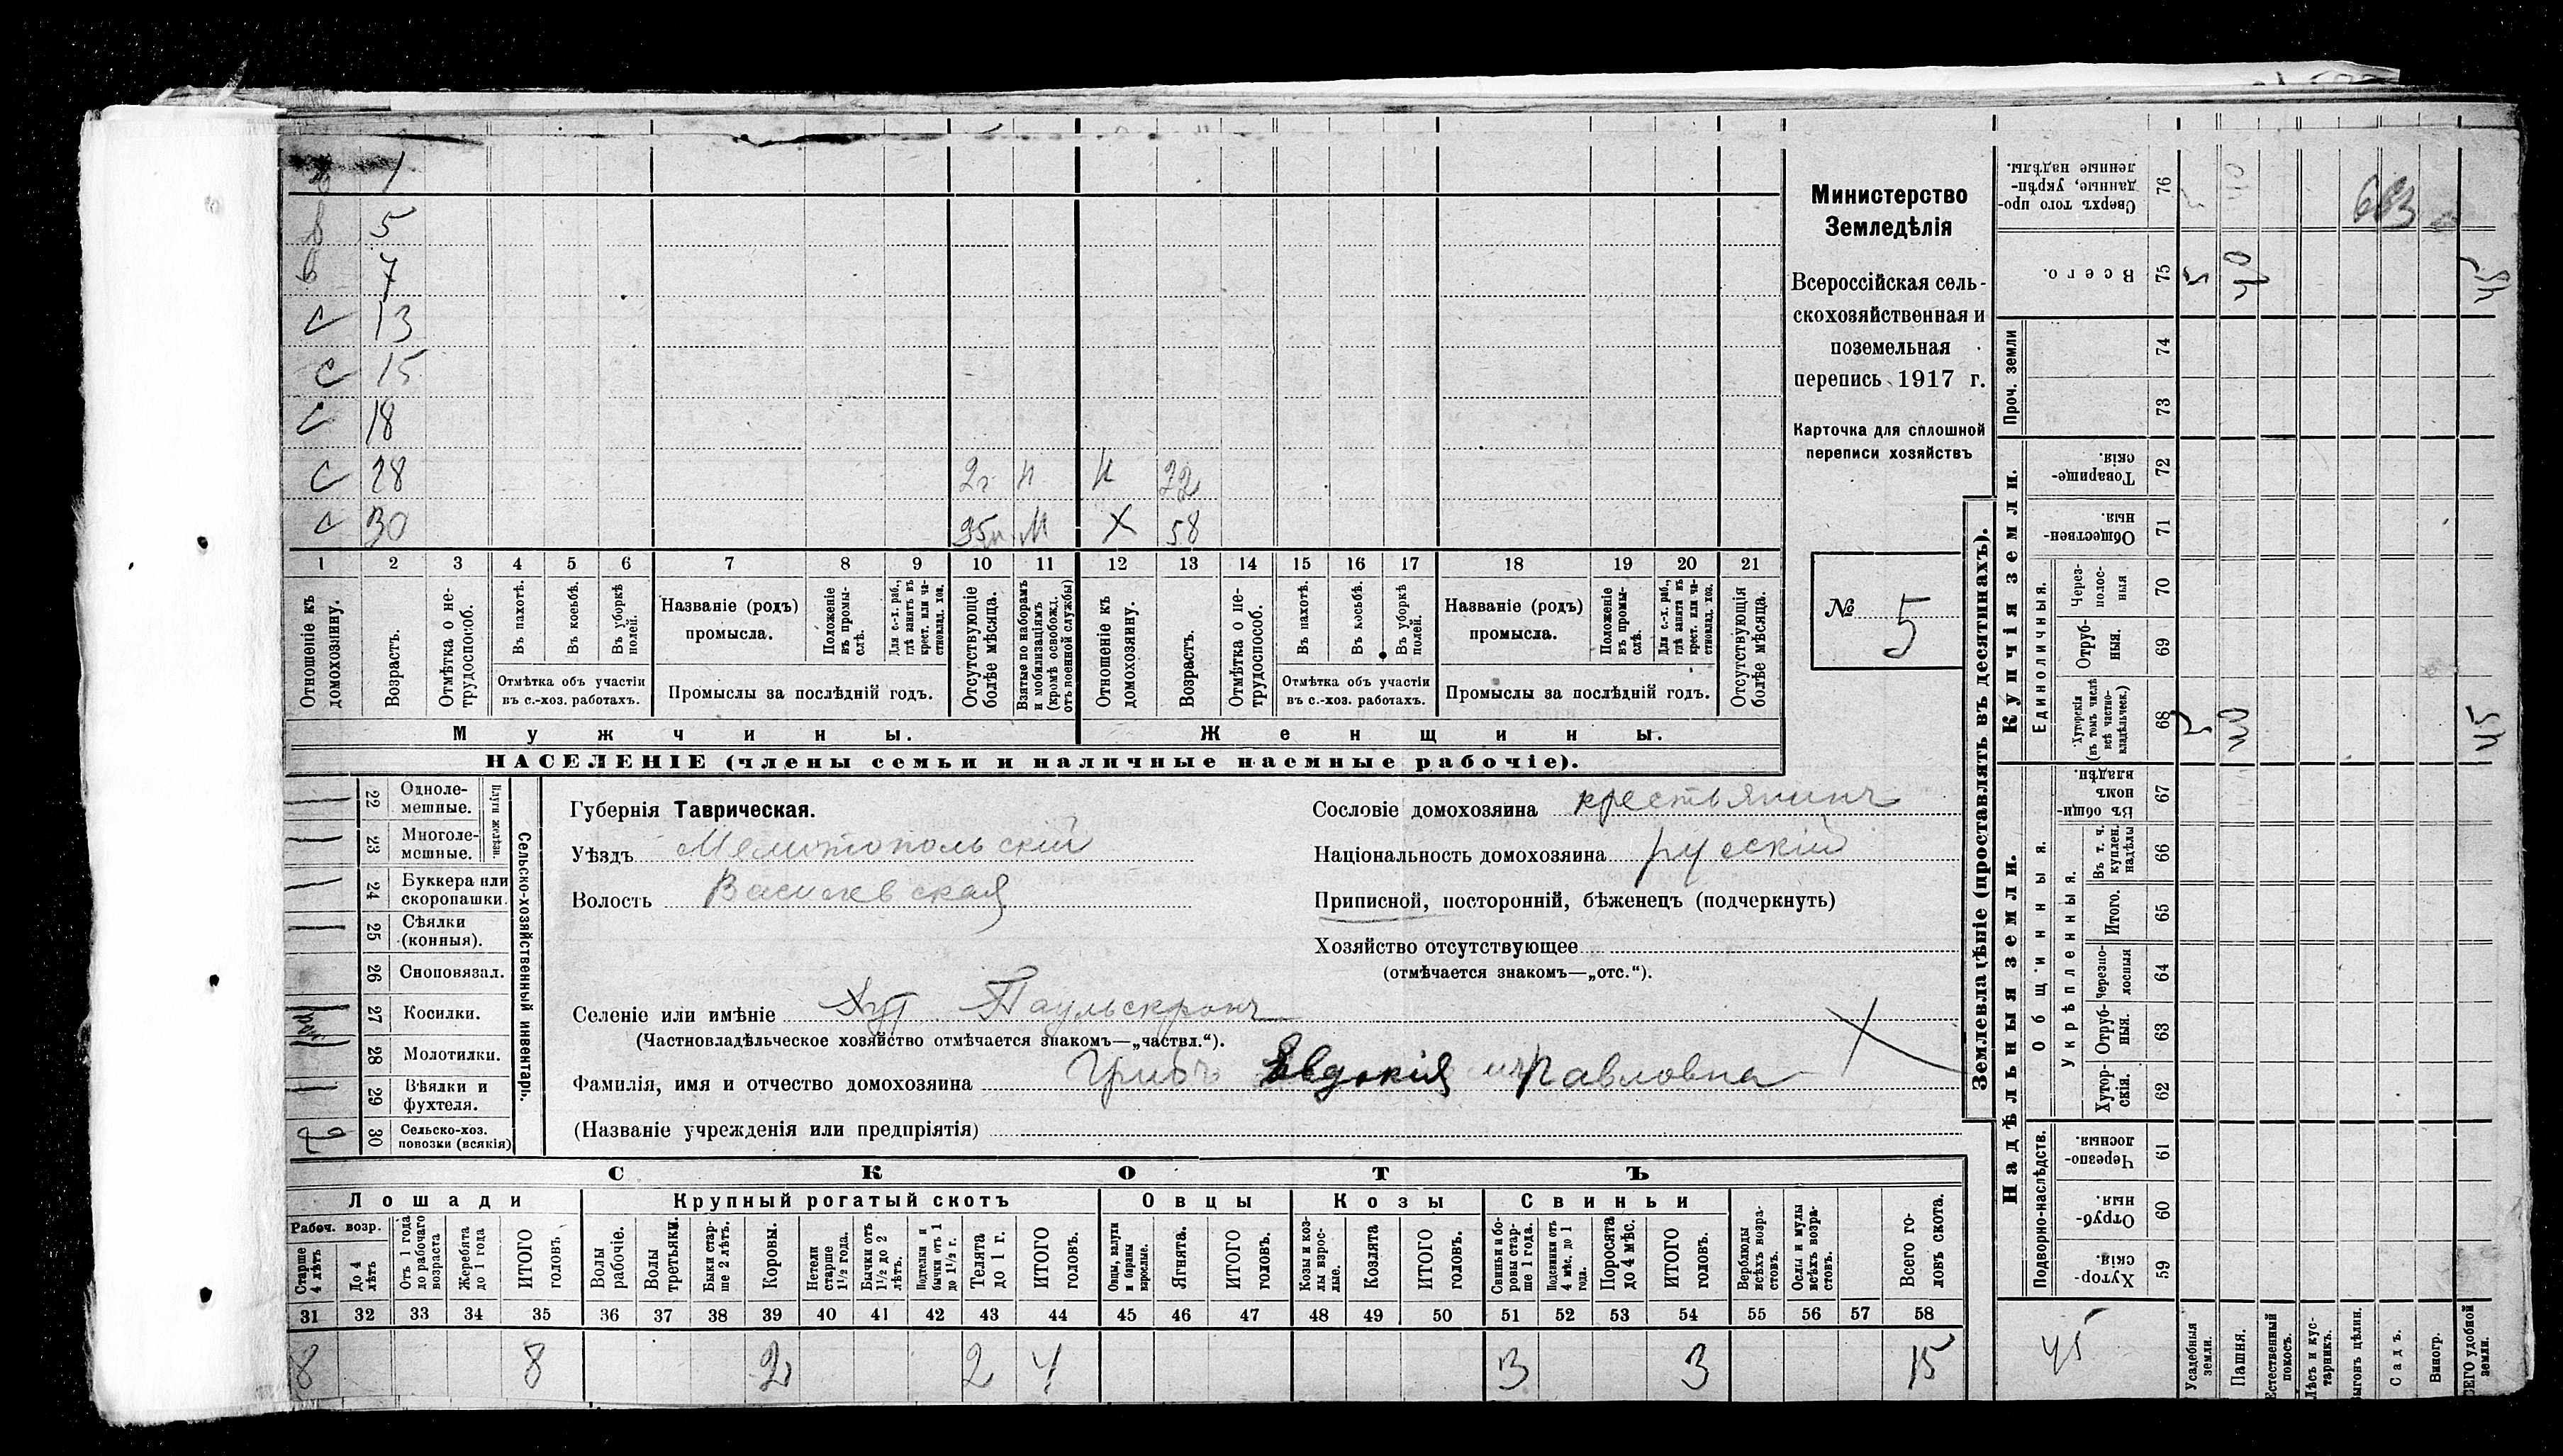 1
в 5
в 7
с 13
с 15
с 18
с 28 2 г. н н 22
с 30 М х 58
1 2 3 4 5 6 7 8 9 10 11 12 13 14 15 16 17 18 19 20 21
Отношеніе къ домохозяину.
Возрастъ.
Отмѣтка о не-трудоспособ.
Въ пахотѣ.
Въ косьбѣ.
Въ уборкѣ полей.
Отмѣтка объ участіи
въ с.-хоз. работахъ.
Названіе (родъ)
промысла.
Положеніе въ промы-слѣ.
Для с.-х. раб., гдѣ занятъ въ крест. или ча-стновлад. хоз.
Промыслы за послѣдній годъ.
Отсутствующіе болѣе мѣсяца.
Взятые по наборамъ и мобилизаціямъ (кромѣ освобожд. отъ военной службы)
Отношеніе къ домохозяину.
Возрастъ.
Отмѣтка о не-трудоспособ.
Въ пахотѣ.
Въ косьбѣ.
Въ уборкѣ полей.
Отмѣтка объ участіи
въ с.-хоз. работахъ.
Названіе (родъ)
промысла.
Положеніе въ промы-слѣ.
Для с.-х. раб., гдѣ занята въ крест. или ча-стновлад. хоз.
Промыслы за послѣдній годъ.
Отсутствующія болѣе мѣсяца.
Мужчины. Женщины.
НАСЕЛЕНІЕ (члены семьи и наличные наемные рабочіе).
Министерство
Земледѣлія
Всероссійская сель-
скохозяйственная и
поземельная
перепись 1917 г.
Карточка для сплошной
переписи хозяйствъ
№ 5
22 Одноле-мешные.
23 Многоле-мешные.
Плуги желѣзн.
24 Буккера или скоропашки.
25 Сѣялки (конныя).
26 Сноповязал.
27 Косилки.
28 Молотилки.
29 Вѣялки и фухтеля.
30 Сельско-хоз. повозки (всякія)
Сельско-хозяйственный инвентарь.
Губернія Таврическая.
Уѣздъ Мелитопольскій
Волость Василевская
Селеніе или имѣніе Хут Паульскронъ
(Частновладѣльческое хозяйство отмѣчается знакомъ—„частвл.“).
Фамилія, имя и отчество домохозяина Грибъ Евдокія Павловна
(Названіе учрежденія или предпріятія)
Сословіе домохозяина крестьянинъ
Національность домохозяина рускій
Приписной, посторонній, бѣженецъ (подчеркнуть)
Хозяйство отсутствующее
(отмѣчается знакомъ—„отс.“).
СКОТЪ
Лошади Крупный рогатый скотъ Овцы Козы Свиньи
Рабоч. возр.
Старше 4 лѣтъ
До 4 лѣтъ
Отъ 1 года до рабочаго возраста
Жеребята до 1 года
ИТОГО головъ.
Волы рабочіе.
Волы третьяки.
Быки стар-ше 2 лѣтъ.
Коровы.
Нетели старше 1½ года.
Бычки отъ 1½ до 2 лѣтъ.
Подтелки и бычки отъ 1 до 1½ г.
Телята до 1 г.
ИТОГО головъ.
Овцы, валухи и бараны взрослые.
Ягнята.
ИТОГО головъ.
Козы и коз-лы взрос-лые.
Козлята
ИТОГО головъ.
Свиньи и бо-ровы стар-ше 1 года.
Подсвинки отъ 4 мѣс. до 1 года.
Поросята до 4 мѣс.
ИТОГО головъ.
Верблюды всѣхъ возра-стовъ.
Ослы и мулы всѣхъ возра-стовъ.
Всего го-ловъ скота.
31 32 33 34 35 36 37 38 39 40 41 42 43 44 45 46 47 48 49 50 51 52 53 54 55 56 57 58
8 8 2 2 4 3 3 15
Землевладѣніе (проставлять въ десятинахъ).
Купчія земли.
Надѣльныя земли.
Сверхъ того про-данные, укрѣп-ленные надѣлы. 76 40
Всего. 75 5 40 45
Проч. земли 74 73
Товарище-скія. 72
Обществен-ныя. 71
Единоличныя.
Через-полос-ныя 70
Отруб-ныя. 69
Хуторскія (въ томъ числѣ всѣ частно-владѣльческ.) 68 5 40 45
Общинныя.
Въ общи-номъ владѣн. 67
Укрѣпленныя.
Въ т. ч. куплен. надѣлы 66
Итого. 65
Черезпо-лосныя 64
Отруб-ныя. 63
Хутор-скія. 62
Подворно-наслѣдств.
Черезпо-лосныя. 61
Отруб-ныя. 60
Хутор-скія. 59
45
Усадебныя земли.
Пашня.
Естественный покосъ.
Лѣсъ и кус-тарникъ.
Выгонъ цѣлин.
Садъ.
Виногр.
ВСЕГО удобной земли.